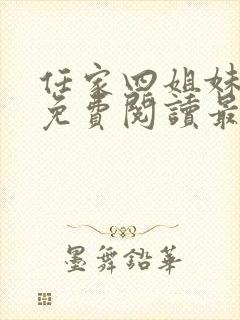 任家四姐妹
免費閱讀最
墨舞鉛華